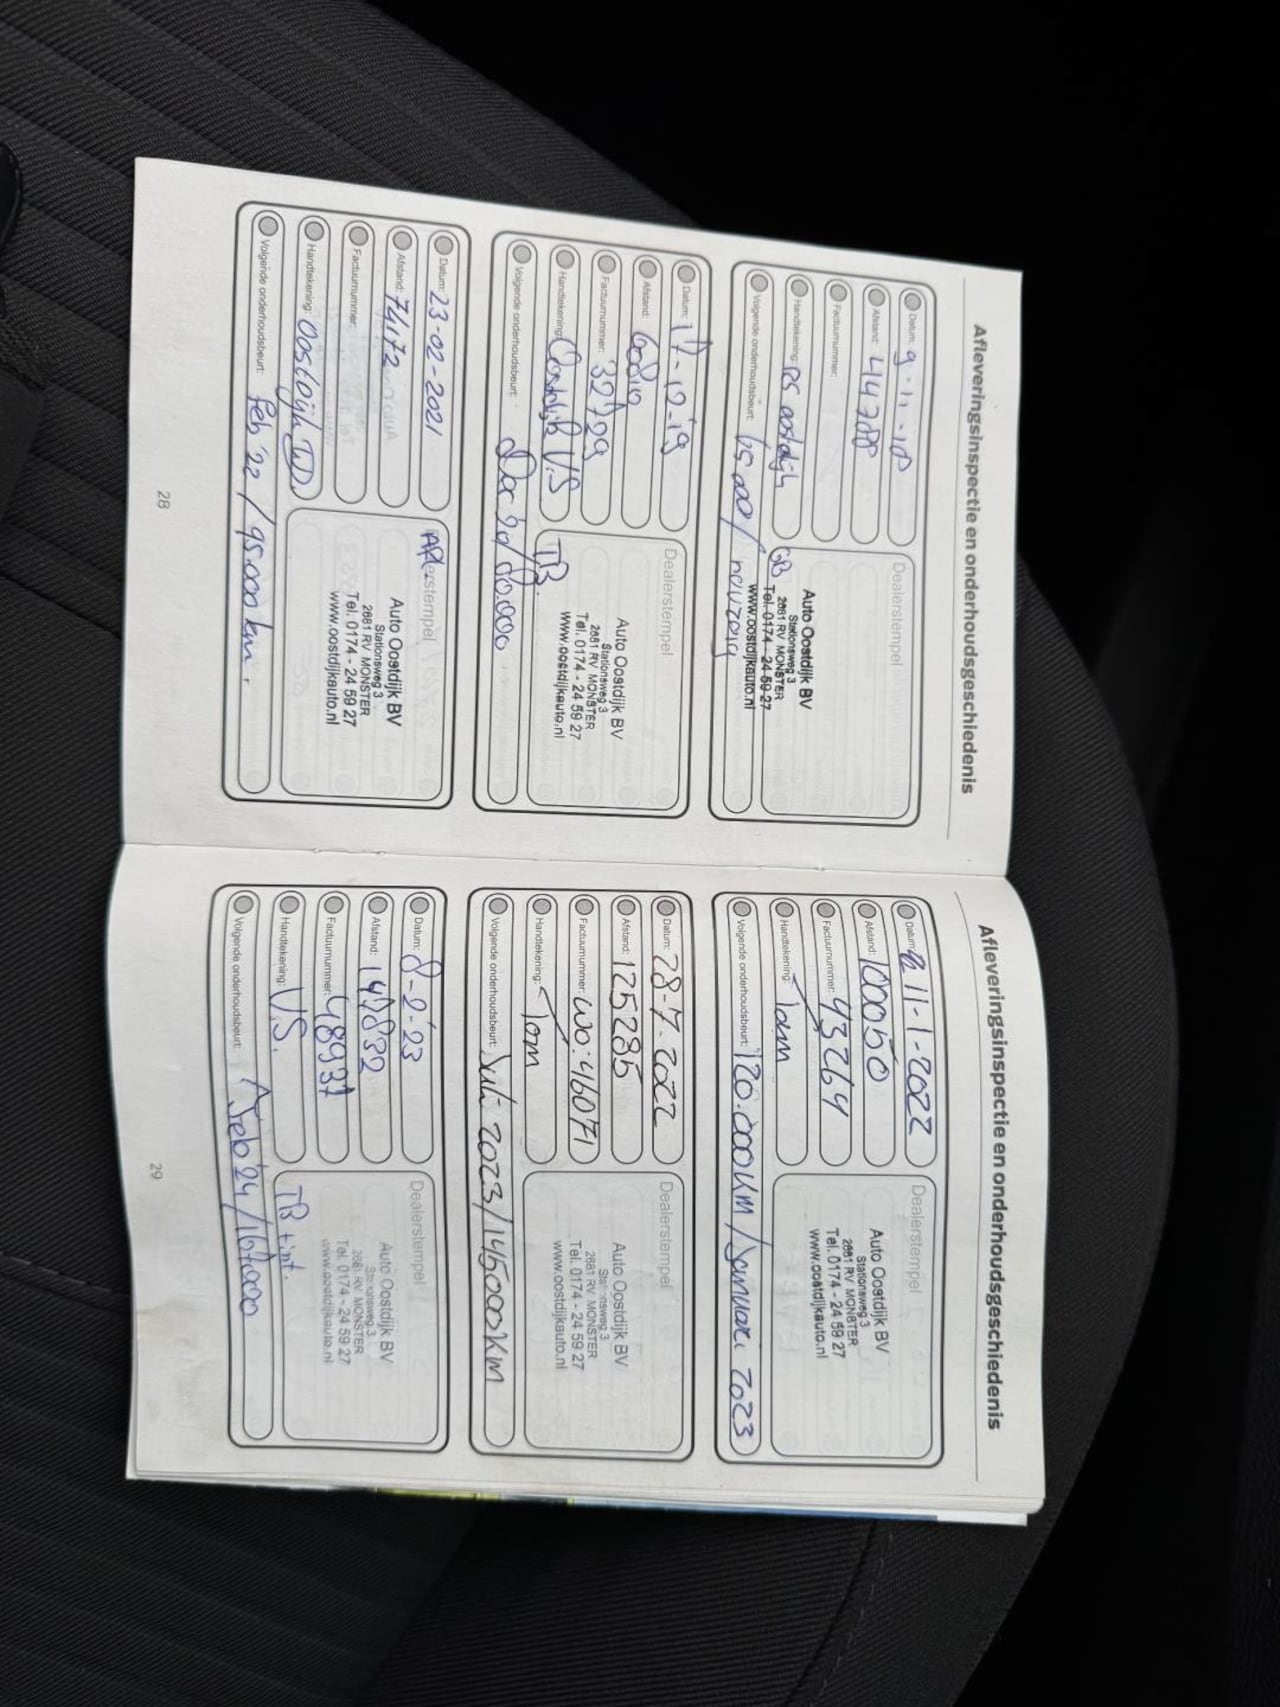 Afleveringsinspectie en onderhoudsgeschiedenis
Datum: 9-11-18
Afstand: 44788
Factuurnummer:
Handtekening: RS oostdijk
Volgende onderhoudsbeurt: 65 000 /
Dealerstempel
Auto Oostdijk BV
Stationsweg 3
2681 RV MONSTER
Tel. 0174 - 24 59 27
www.oostdijkauto.nl
GB
Datum: 17-10-'19
Afstand: 60810
Factuurnummer: 32729
Handtekening: Oostdijk V.S
Volgende onderhoudsbeurt: Dec '20/80.000
Dealerstempel
Auto Oostdijk BV
Stationsweg 3
2681 RV MONSTER
Tel. 0174 - 24 59 27
www.oostdijkauto.nl
TB.
Datum: 23-02-2021
Afstand: 74172
Factuurnummer:
Handtekening: Oostdijk
Volgende onderhoudsbeurt: feb '22 / 95.000 km.
Dealerstempel
Auto Oostdijk BV
Stationsweg 3
2681 RV MONSTER
Tel. 0174 - 24 59 27
www.oostdijkauto.nl
28
Afleveringsinspectie en onderhoudsgeschiedenis
Datum: 11-1-2022
Afstand: 100050
Factuurnummer: 43264
Handtekening: Tom
Volgende onderhoudsbeurt: 120.000KM / Januari 2023
Dealerstempel
Auto Oostdijk BV
Stationsweg 3
2681 RV MONSTER
Tel. 0174 - 24 59 27
www.oostdijkauto.nl
Datum: 28-7-2022
Afstand: 125285
Factuurnummer: WO:46071
Handtekening: Tom
Volgende onderhoudsbeurt: Juli 2023/145000KM
Dealerstempel
Auto Oostdijk BV
Stationsweg 3
2681 RV MONSTER
Tel. 0174 - 24 59 27
www.oostdijkauto.nl
Datum: 8-2-'23
Afstand: 147832
Factuurnummer: 48937
Handtekening: V.S.
Volgende onderhoudsbeurt: Feb '24 / 167.000
Dealerstempel
Auto Oostdijk BV
Stationsweg 3
2681 RV MONSTER
Tel. 0174 - 24 59 27
www.oostdijkauto.nl
TB + int.
29